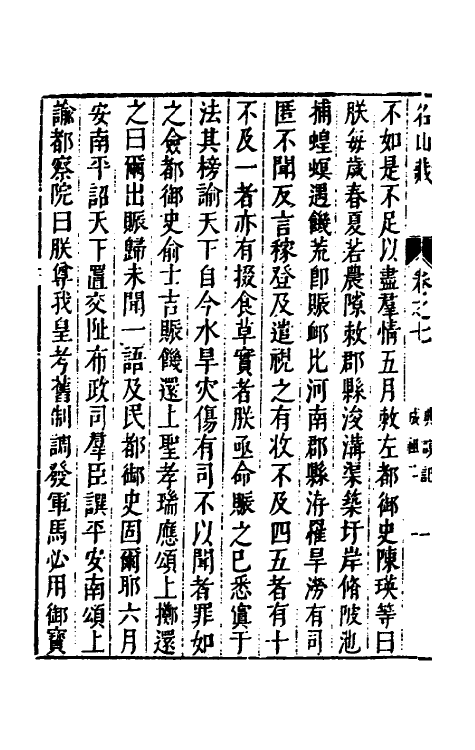 名山藏
卷之七
典謨記
成祖二
一
不如是不足以盡羣情五月敕左都御史陳瑛等曰
朕每歲春夏若農隙敕郡縣浚溝渠築圩岸脩陂池
捕蝗螟遇饑荒卽賑䘏比河南郡縣洊罹旱澇有司
匿不聞反言稼登及遣視之有收不及四五者有十
不及一者亦有掇食草實者朕亟命賑之已悉寘于
法其榜諭天下自今水旱灾傷有司不以聞者罪如
之僉都御史俞士吉賑饑還上聖孝瑞應頌上擲還
之曰爾出賑歸未聞一語及民都御史固爾耶六月
安南平詔天下置交阯布政司羣臣譔平安南頌上
諭都察院曰朕尊我皇考舊制調發軍馬必用御寶